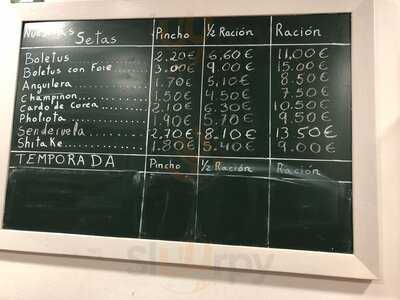 Nuestras Setas Pincho ½ Ración Ración
Boletus 2.20€ 6.60€ 11.00€
Boletus con Foie 3.00€ 9.00€ 15.00€
Anguilera 1.70€ 5.10€ 8.50€
Champiñon 1.50€ 4.50€ 7.50€
Cardo de Corea 2.10€ 6.30€ 10.50€
Pholiota 1.90€ 5.70€ 9.50€
Senderuela 2.70€ 8.10€ 13.50€
Shitake 1.80€ 5.40€ 9.00€
TEMPORADA Pincho ½ Ración Ración
Slurrpy